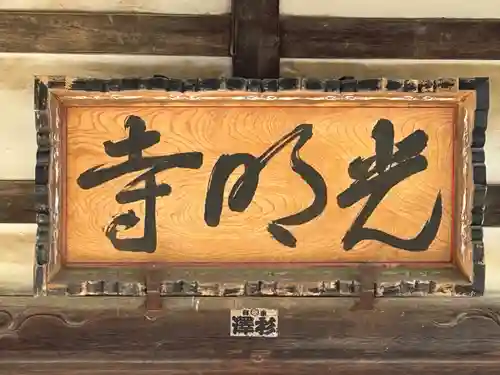 光明寺
澤杉